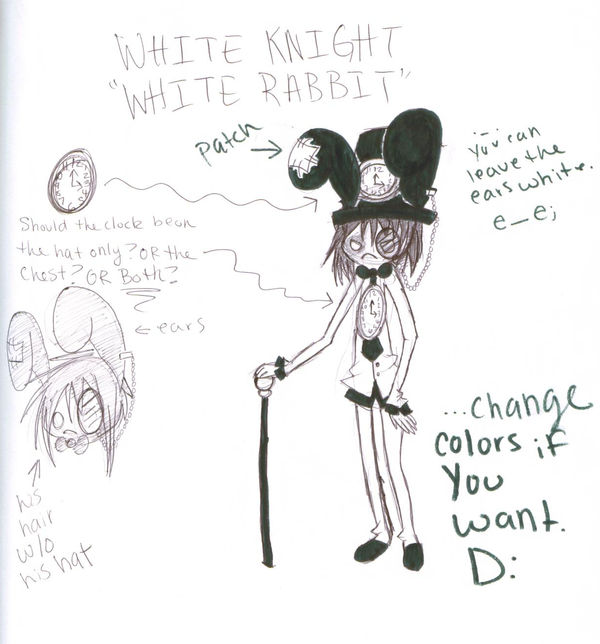 WHITE KNIGHT
"WHITE RABBIT"
patch
You can
leave the
ears white.
e_e;
Should the clock be on
the hat only? OR the
Chest? OR Both?
← ears
his
hair
w/o
his hat
...change
colors if
You
want.
D: